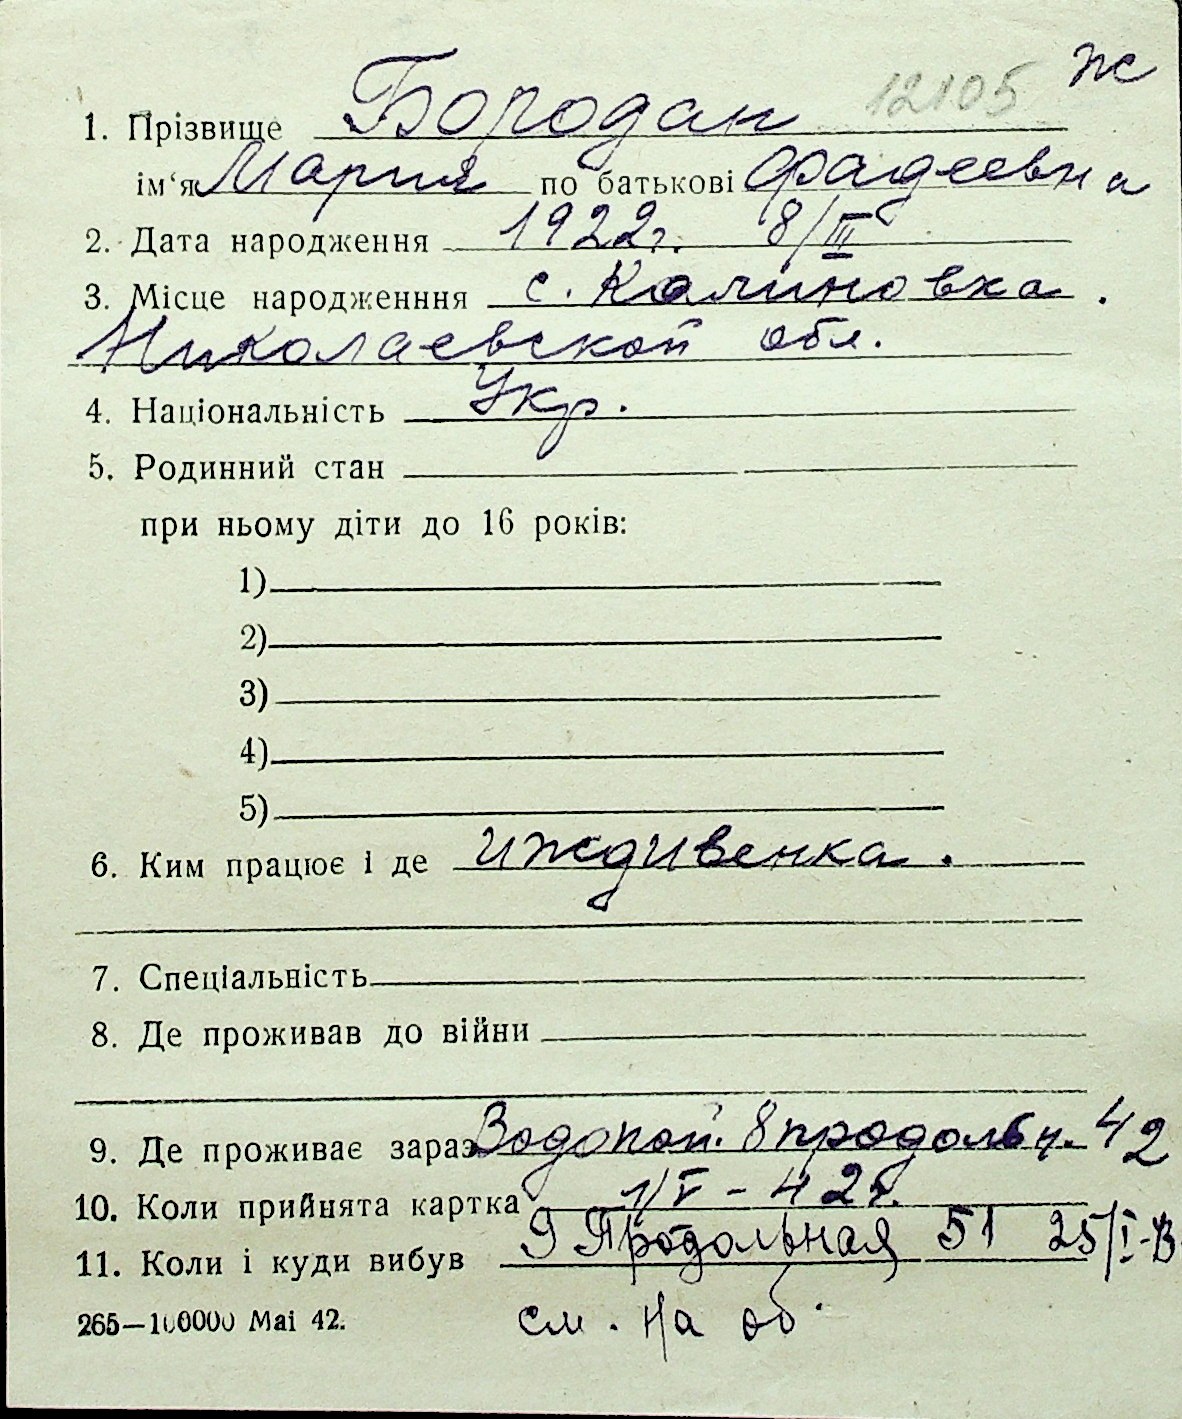 ж
12105
1. Прізвище Бородан
ім‘я Мария по батькові Фадеевна
2. Дата народження 1922г. 8/III
3. Місце народженння с. Калиновка.
Николаевской обл.
4. Національність Укр.
5. Родинний стан
при ньому діти до 16 років:
1)
2)
3)
4)
5)
6. Ким працює і де иждивенка.
7. Спеціальність
8. Де проживав до війни
9. Де проживає зараз Водопой. 8 продольн. 42
10. Коли прийнята картка 1/V – 42г.
11. Коли і куди вибув 9 Продольная 51 25/I-
265—100000 Маі 42.
см. на об.